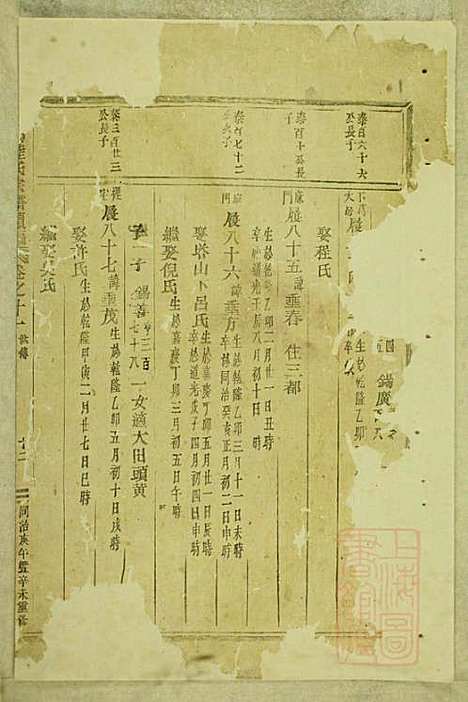 泰百六十六
公長子
下
大
展
生於乾隆乙卯
四
錫廣
泰百十公長
子
麻
門
展八十五諱垂春 住三都
生於乾隆乙卯二月廿一日丑時
卒於道光壬辰八月初十日時
娶程氏
泰百七十二
麻
門
展八十六諱垂方
生於乾隆乙卯三月十一日未時
卒於同治癸亥正月初二日申時
娶塔山下呂氏
生於嘉慶丁卯五月廿一日辰時
卒於道光戊子四月初四日申時
繼娶倪氏
生於嘉慶丁卯三月初五日午時
子 錫善
百
七十八
一女適大田頭黃
泰三百廿三
公長子
展八十七諱垂茂
生於乾隆乙卯五月初十日戌時
娶許氏
生於乾隆甲寅二月廿七日巳時
繼娶吳氏
氏宗譜
卷之十一
十二
同治庚午暨辛未重修
上海圖書館藏